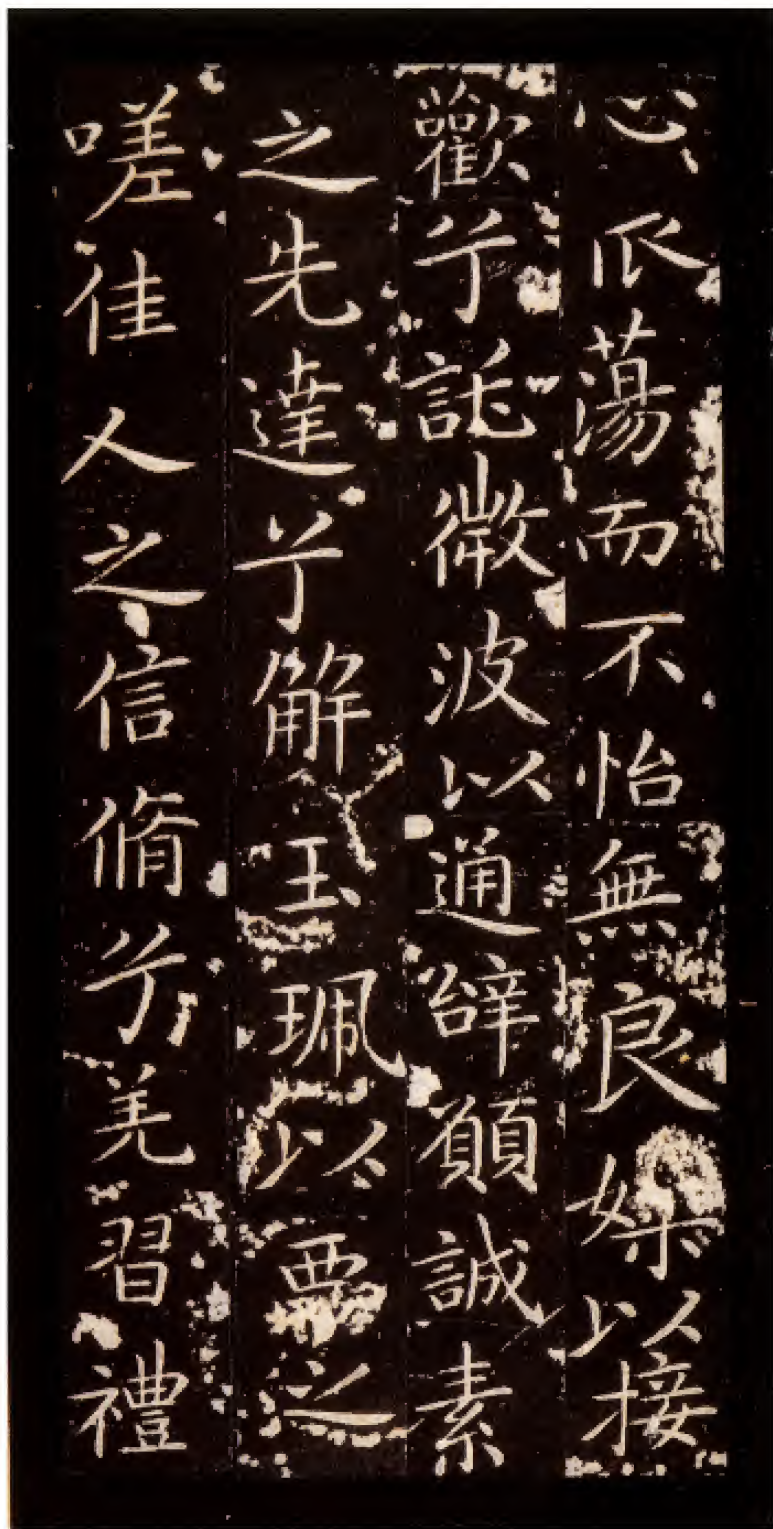 心蕩而不怡無良媒以接
歡兮託微波以通辝願誠素
之先達兮解玉珮以要之
嗟佳人之信脩兮羌習禮